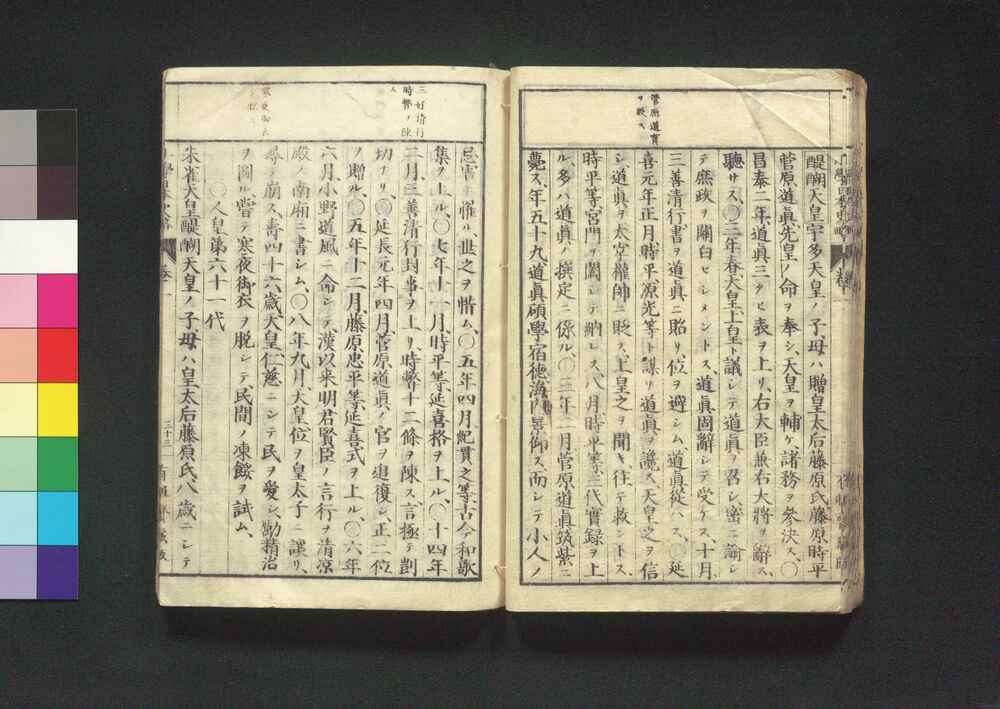 菅原道眞
ヲ貶ス
醍醐天皇宇多天皇ノ子母ハ贈皇太后藤原氏藤原時平
菅原道眞先皇ノ命ヲ奉シ天皇ヲ輔ケ諸務ヲ參決ス、〇
昌泰二年、道眞三タヒ表ヲ上リ、右大臣兼右大將ヲ辭ス、
聽サス、〇三年春、天皇上皇ト議シテ道眞ヲ召シ密ニ諭シ
テ庶政ヲ關白セシメントス、道眞固辭シテ受ケス、十月
三善清行書ヲ道眞ニ貽リ位ヲ避シム、道眞從ハス、〇延
喜元年正月時平、源光等ト謀リ道眞ヲ讒ス天皇之ヲ信
シ、道眞ヲ太宰權帥ニ貶ス、上皇之ヲ聞キ往テ救ントス、
時平等宮門ヲ閉シテ納レス、八月時平等三代實録ヲ上
ル、多ハ道眞ノ撰定ニ係ル、〇三年二月菅原道眞筑紫ニ
薨ス、年五十九道眞碩學宿德海內景仰ス、而シテ小人ノ
三好清行
時弊ノ陳
忌害ニ罹ル、世之ヲ惜ム、〇五年四月紀貫之等古今和歌
集ヲ上ル、〇七年十一月、時平等延喜格ヲ上ル、〇十四年
二月、三善清行封事ヲ上リ、時弊十二條ヲ陳ス言極テ剴
切ナリ、〇延長元年四月、菅原道眞ノ官ヲ追復シ正二位
ヲ贈ル、〇五年十二月、藤原忠平等延喜式ヲ上ル、〇六年
六月小野道風ニ命シテ漢以來明君賢臣ノ言行ヲ清凉
殿ノ南廂ニ書シム、〇八年九月天皇位ヲ皇太子ニ讓リ、
尋テ崩ス壽四十六歳天皇仁慈ニシテ民ヲ愛シ勵精治
ヲ圖ル嘗テ寒夜御衣ヲ脫シテ民間ノ凍餒ヲ試ム、
〇人皇第六十一代
朱雀天皇醍醐天皇ノ子母ハ皇太后藤原氏、八歳ニシテ
三十三